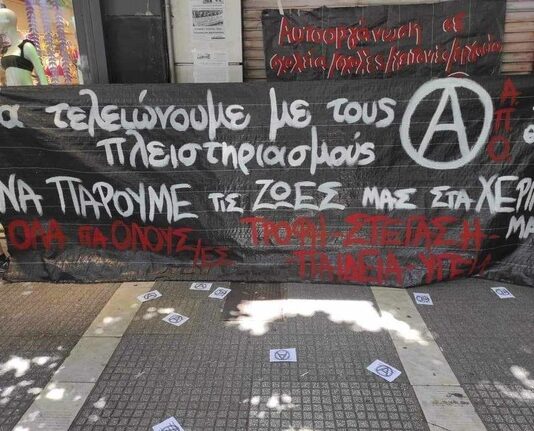 Αυτοοργάνωση σε
σχολεία/σχολές/γειτονιές/εργασία
α τελειώνουμε με τους
πλειστηριασμούς
Α
Α.Π.Ο.
ΝΑ ΠΑΡΟΥΜΕ τις ΖΩΕΣ μας στα ΧΕΡΙ
ΜΑ
ΟΛΑ ΓΙΑ ΟΛΟΥΣ/ΕΣ ΤΡΟΦΗ-ΣΤΕΓΑΣΗ-
-ΠΑΙΔΕΙΑ-ΥΓΕΙΑ